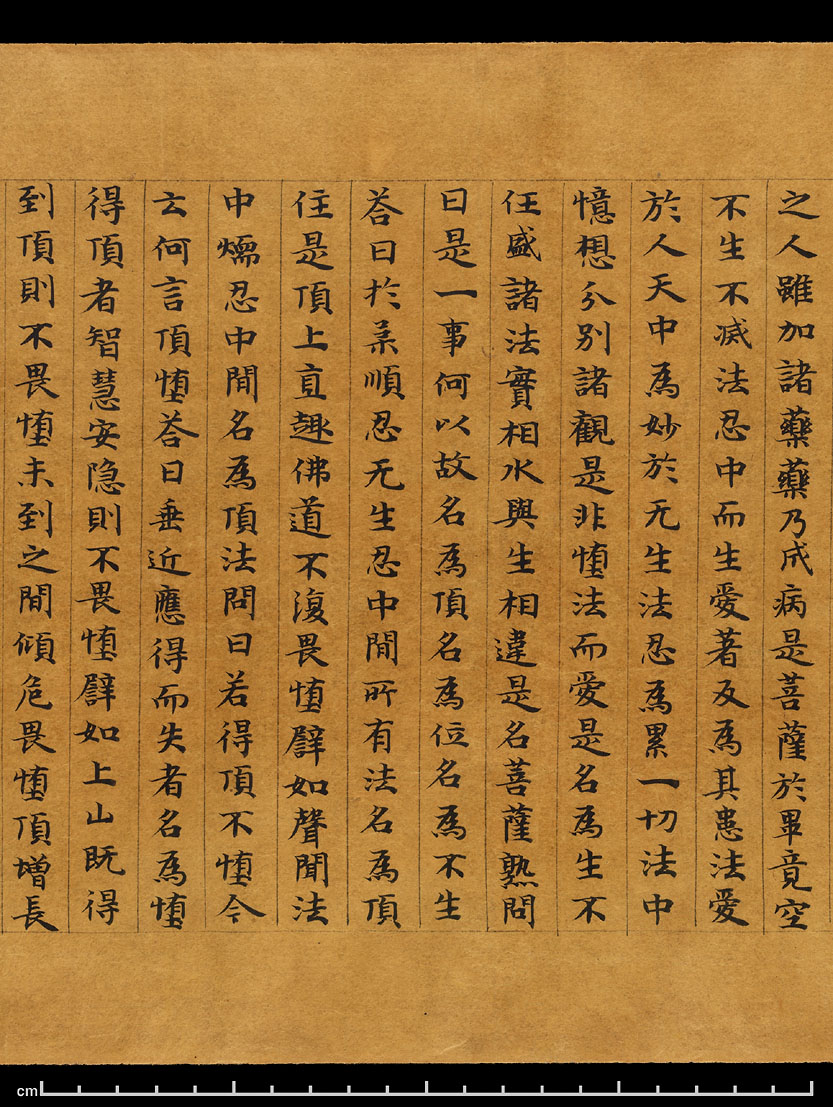 之人雖加諸藥藥乃成病是菩薩於畢竟空
不生不滅法忍中而生愛著反為其患法愛
於人天中為妙於无生法忍為累一切法中
憶想分別諸觀是非憧法而愛是名為生不
任盛諸法實相水與生相違是名菩薩熟問
曰是一事何以故名為頂名為位名為不生
荅曰於柔順忍无生忍中間所有法名為頂
住是頂上直趣佛道不復畏憧譬如聲聞法
中燸忍中間名為頂法問曰若得頂不憧今
云何言頂憧荅曰垂近應得而失者名為憧
得頂者智慧安隱則不畏憧譬如上山既得
到頂則不畏憧未到之間傾危畏憧頂增長
cm